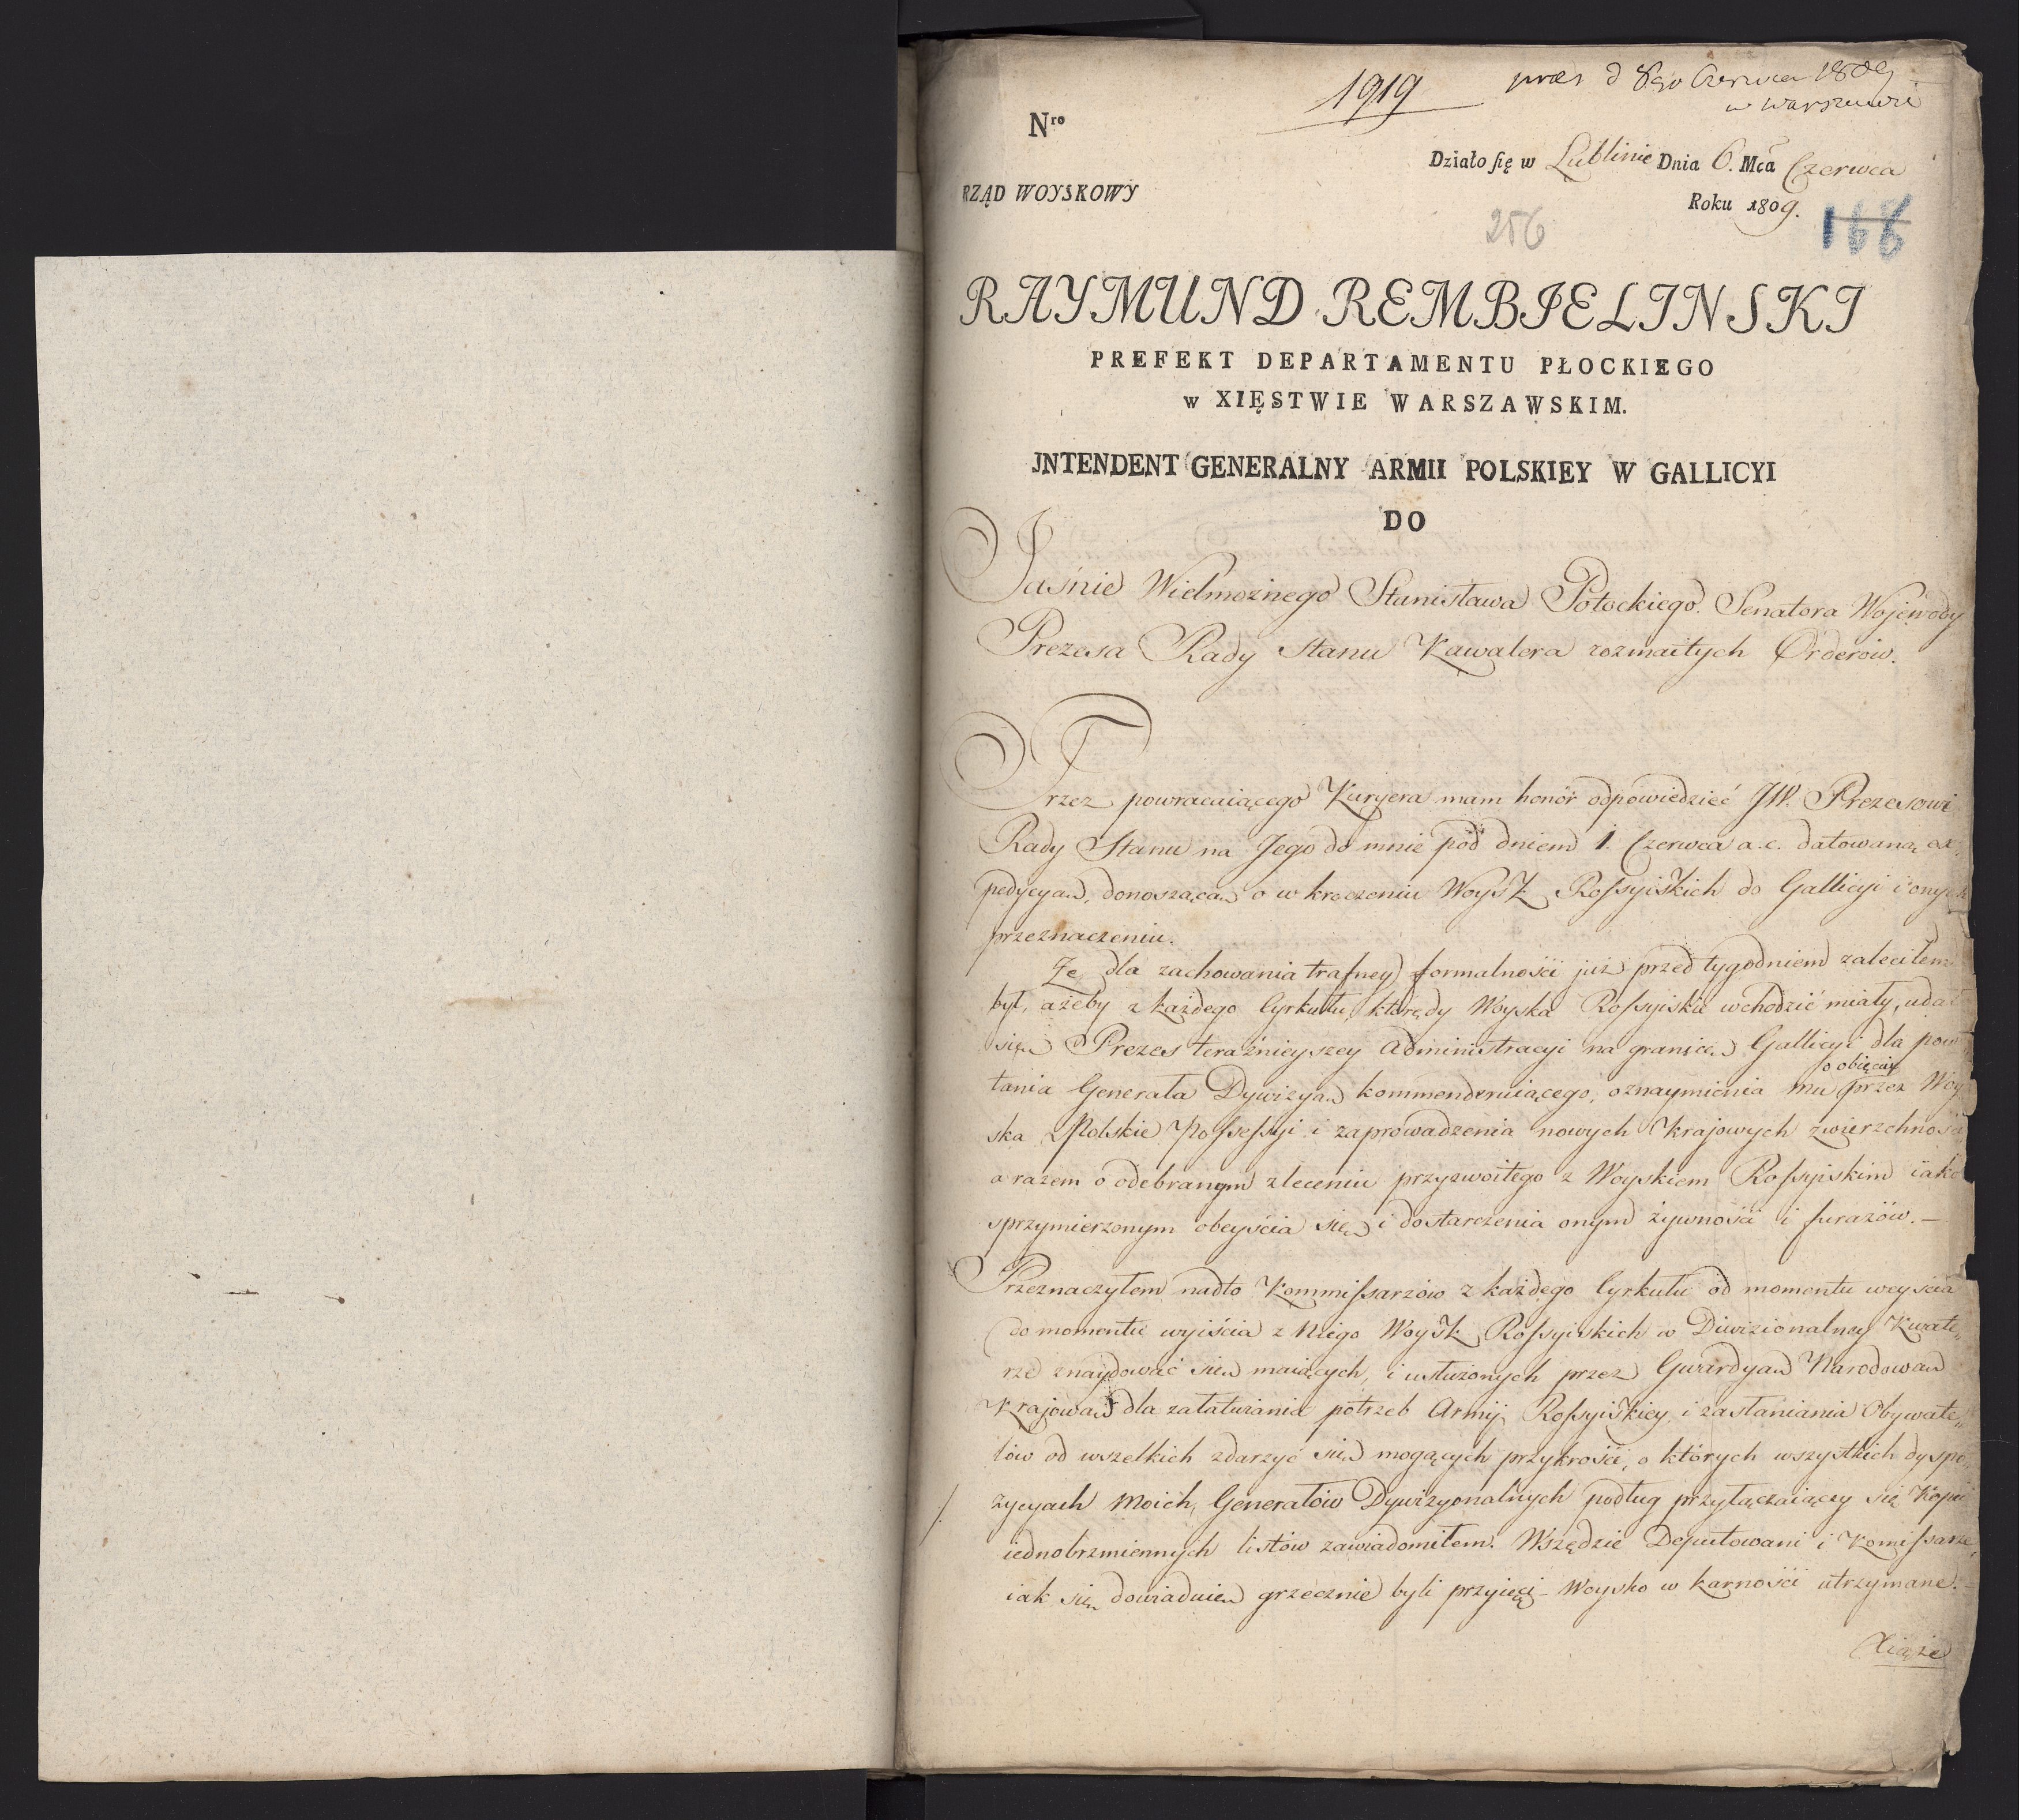 1919
præs d 8go Czerwca 1809
w Warszawie
Nro
Działo się w Lublinie Dnia 6. Mca Czerwca
RZĄD WOYSKOWY
Roku 1809.
256
RAYMUND REMBIELINSKI
PREFEKT DEPARTAMENTU PŁOCKIEGO
w XIĘSTWIE WARSZAWSKIM.
JNTENDENT GENERALNY ARMII POLSKIEY W GALLICYI
DO
Jaśnie Wielmożnego Stanisława Potockiego. Senatora Wojewody
Prezesa Rady Stanu Kawalera rozmaitych Orderów.
Przez powracaiącego Kuryera mam honór odpowiedzieć JW. Prezesowi
Rady Stanu na Jego do mnie pod dniem 1. Czerwca a. c. datowaną ex,
pedycyą, donoszącą o wkroczeniu Woysk Rossyiskich do Gallicyi i onych
przeznaczeniu.
Że dla zachowania trafney formalności już przed tygodniem zaleciłem
był, ażeby z każdego Cyrkułu, którędy Woyska Rossyiskie wchodzić miały, udał
się Prezes teraźnieyszey Administracyi na granicę Gallicyi dla powi
tania Generała Dywizyą kommenderuiącego, oznaymienia mu o obięciu przez Woy
ska Polskie Possessyi i zaprowadzenia nowych krajowych zwierzchności
a razem o odebranym zleceniu przyzwoitego z Woyskiem Rossyiskim iako
sprzymierzonym obeyścia się i dostarczenia onym żywności i furażów. –
Przeznaczyłem nadto Kommissarzów z każdego Cyrkułu od momentu weyścia
do momentu wyiścia z Niego Woysk Rossyiskich w Diwizionalney Kwate„
rze znaydować się maiących, i usłużonych przez Gwardyą Narodową
Krajową dla załatwiania potrzeb Armij Rossyiskiey, i zasłaniania Obywate„
lów od wszelkich zdarzyć się mogących przykrości, o których wszystkich dyspo
zycyach Moich, Generałów Dywizyonalnych podług przyłączaiącey się Kopii
iednobrzmiennych listów zawiadomiłem. Wszędzie Deputowani i Komissarze,
iak się dowiaduię grzecznie byli przyięci – Woysko w karności utrzymane. –
Xiąże